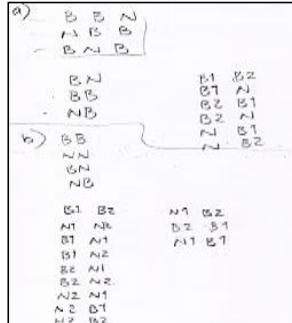 a) B B N
N B B
B N B
B N
B B
N B
B1 B2
B1 N
B2 B1
B2 N
N B1
N B2
b) B B
N N
B N
N B
B1 B2
N1 N2
B1 N1
B1 N2
B2 N1
B2 N2
N2 N1
N2 B1
N2 B2
N1 B2
B2 B1
N1 B1